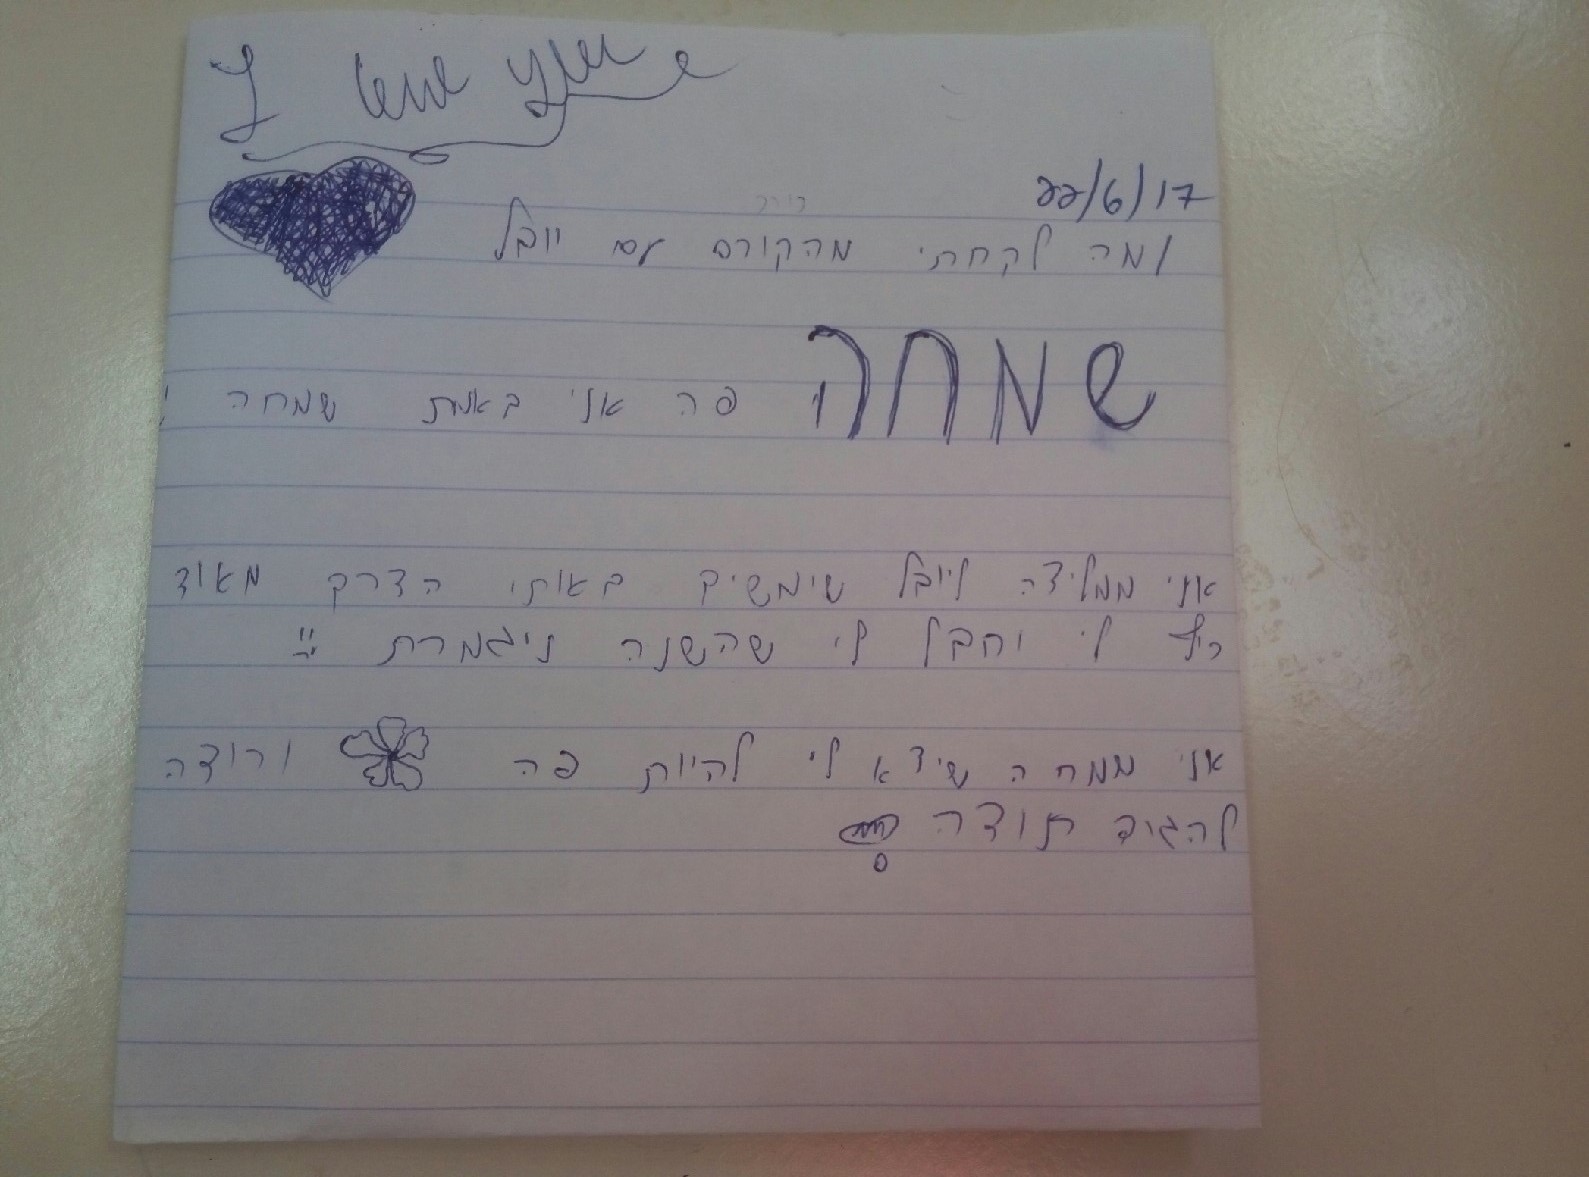 I love you
22/6/17
ומה לקחתי מהקורס עם יובל
שמחה פה אני באמת שמחה !
אני ממליצה ליובל שימשיך באותי הדרך מאוד
כיף לי וחבל לי שהשנה ניגמרת
אני שמחה שיצא לי להיות פה ורוצה
להגיד תודה